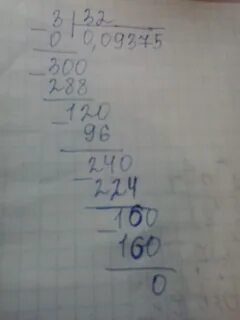 - 3 | 32
0 0,09375
- 300
288
- 120
96
- 240
224
- 160
160
0